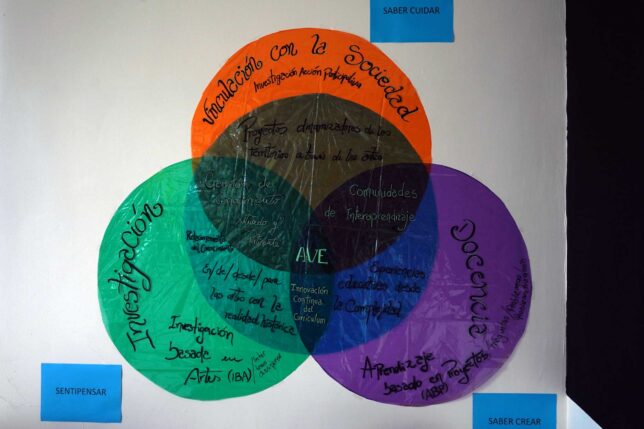 SABER CUIDAR
Vinculación con la Sociedad
Investigación Acción Participativa
Proyectos dinamizadores de los
territorios a través de las artes
Gestión de
conocimiento
situado y
Comunidades
de Interaprendizaje
Investigación
Docencia
AVE
En/desde/para
las artes con la
realidad histórica
Experiencias
educativas desde
la Complejidad
Innovación
Continua
del
Curriculum
Investigación
basada en
Artes (IBA)
Aprendizaje
basado en Proyectos
(ABP)
SENTIPENSAR
SABER CREAR